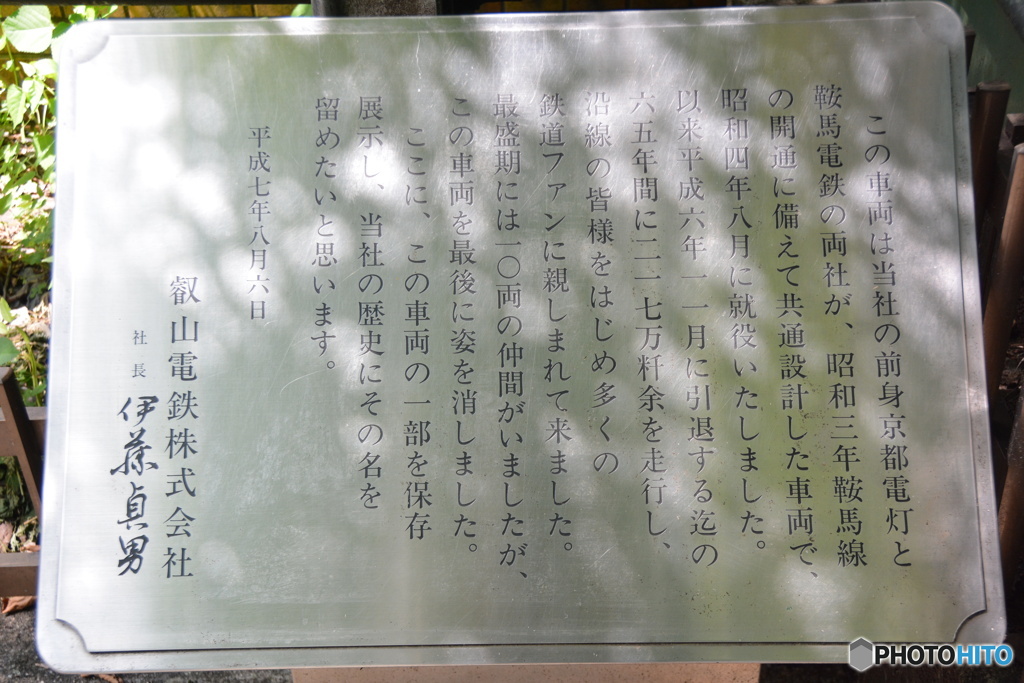 この車両は当社の前身京都電灯と
鞍馬電鉄の両社が、昭和三年鞍馬線
の開通に備えて共通設計した車両で、
昭和四年八月に就役いたしました。
以来平成六年一一月に引退する迄の
六五年間に二一七万粁余を走行し、
沿線の皆様をはじめ多くの
鉄道ファンに親しまれて来ました。
最盛期には一〇両の仲間がいましたが、
この車両を最後に姿を消しました。
ここに、この車両の一部を保存
展示し、当社の歴史にその名を
留めたいと思います。
平成七年八月六日
叡山電鉄株式会社
社長 伊藤貞男
PHOTOHITO